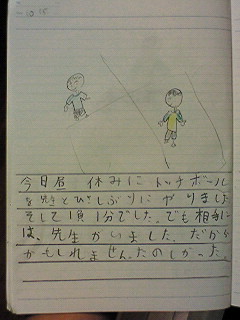 今日昼 休みに ドッチボール
を 先生とひさしぶりに やりました
そして1負1分でした。でも相手に
は、先生がいました。だから
かもしれません。たのしかった。